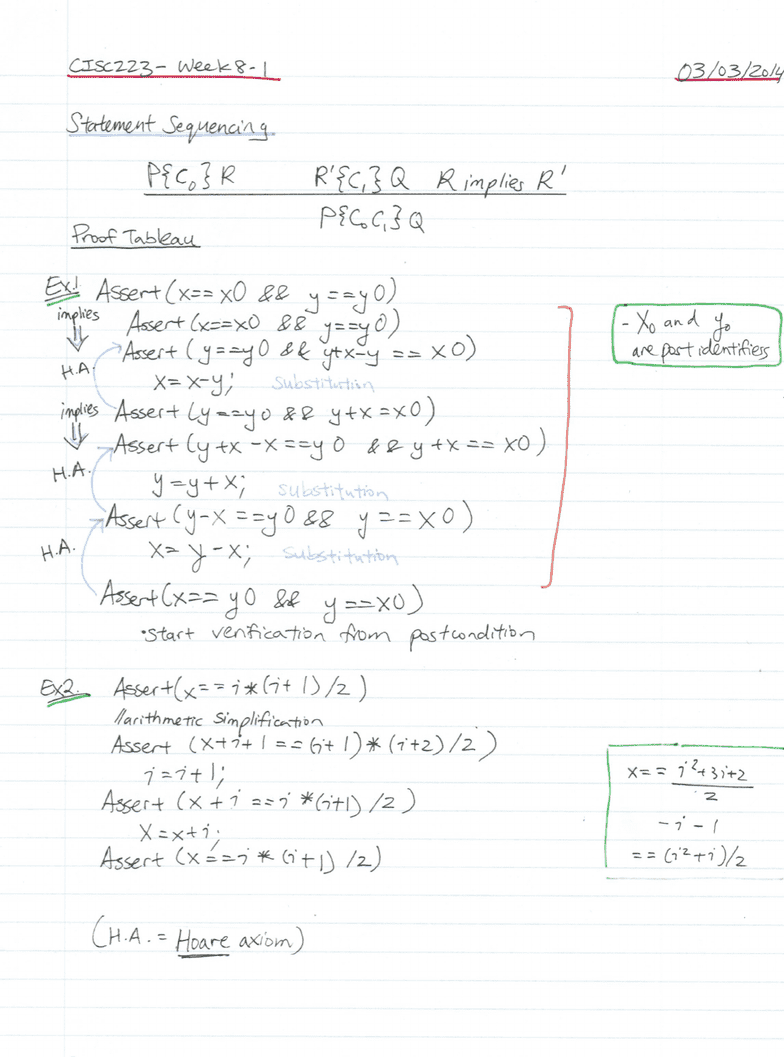 CISC223 - Week 8-1
03/03/2014
Statement Sequencing
P{C₀} R R'{C₁} Q R implies R'
P{C₀C₁} Q
Proof Tableau
Ex.1 Assert (x== x0 && y ==y0)
implies Assert (x==x0 && y==y0)
Assert (y==y0 && y+x-y == x0)
H.A.
x= x-y; substitution
implies Assert (y==y0 && y+x =x0)
Assert (y+x -x ==y0 && y+x == x0)
H.A.
y =y+x; substitution
Assert (y-x ==y0 && y ==x0)
H.A. x= y -x; substitution
Assert (x== y0 && y ==x0)
•start verification from postcondition
- X₀ and y₀
are part identifiers
Ex2. Assert (x== i*(i+1)/2)
//arithmetic simplification
Assert (x+i+1 ==(i+1)*(i+2)/2)
i=i+1;
Assert (x+i ==i*(i+1) /2)
X =x+i;
Assert (x ==i * (i+1) /2)
x== i²+3i+2
2
-i-1
== (i²+i)/2
(H.A. = Hoare axiom)